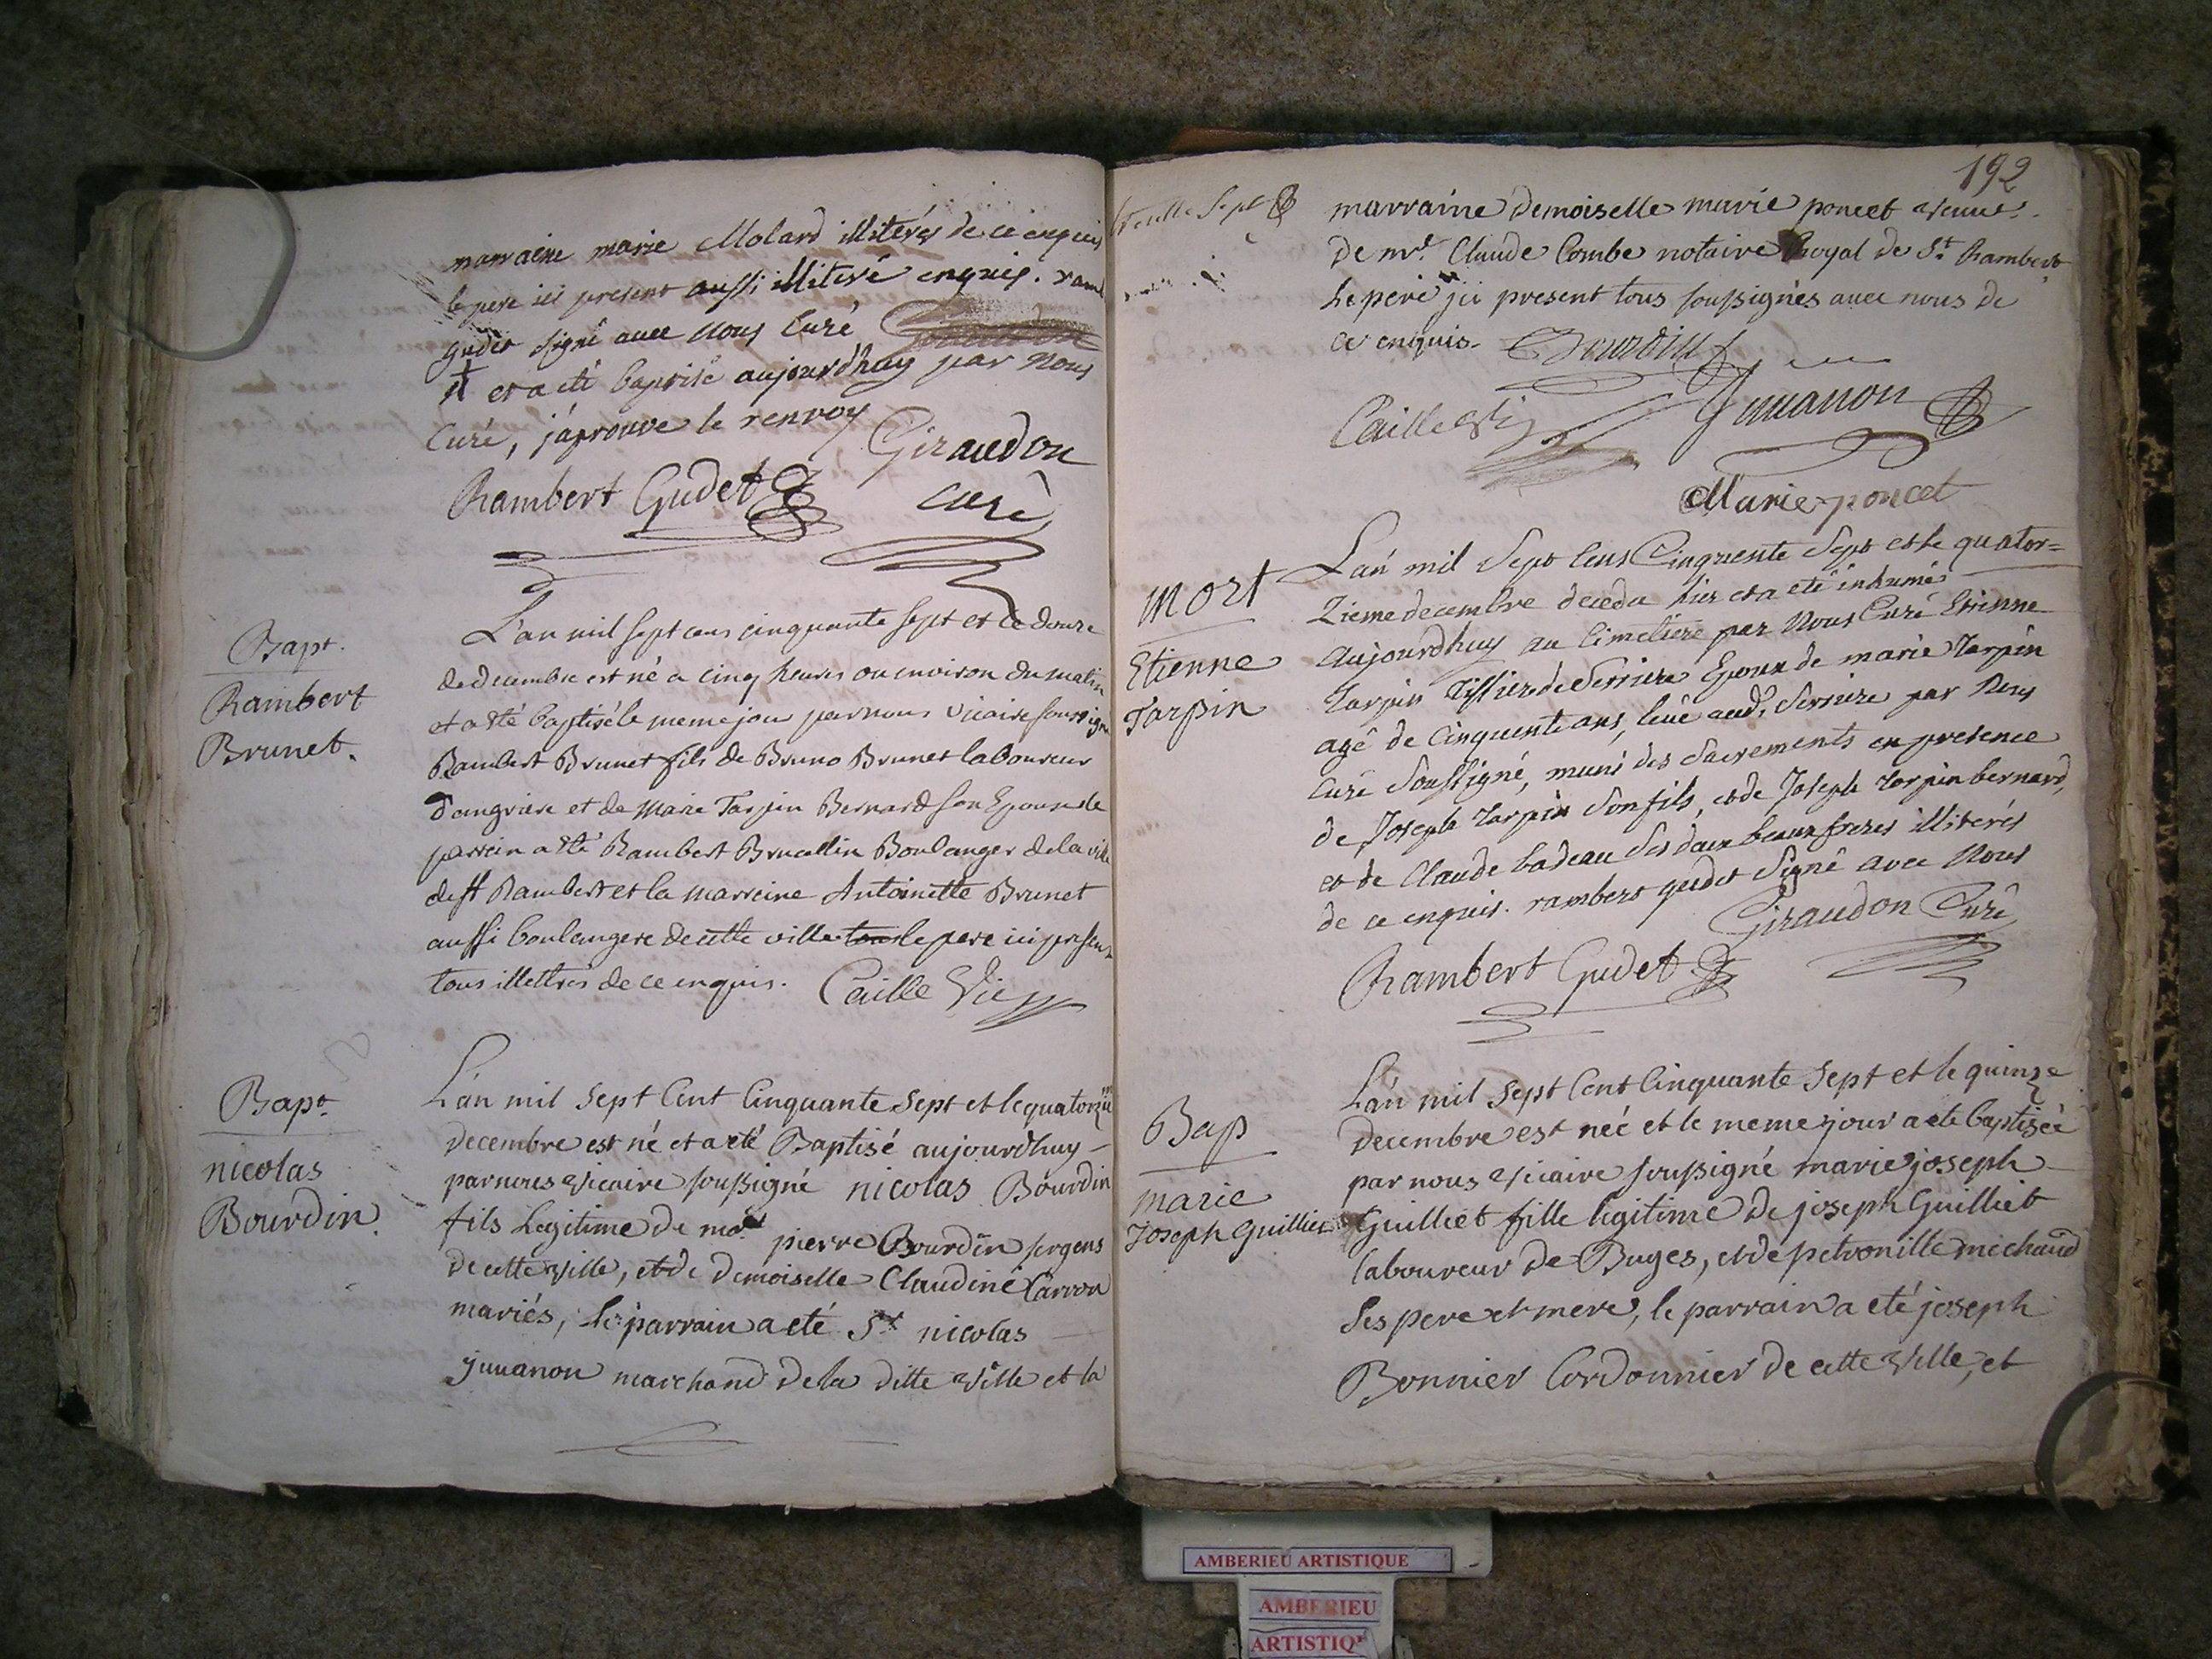 marraine marie Molard illiterés de ce enquis
le pere ici present aussi illiteré enquis. ramb
gudet signé avec Nous Curé
† et a eté baptisé aujourdhuy par Nous
Curé, j'aprouve le renvoy
Giraudon
Curé
Rambert Gudet
Bapt.
Rambert
Brunet.
L'an mil sept cens cinquante sept et le douze
de decembre est né a cinq heures ou environ du matin
et a été baptisé le meme jour par nous vicaire soussigné
Rambert Brunet fils de Bruno Brunet laboureur
d'angriere et de Marie Tarpin Bernard son Epouse le
parrein a été Rambert Brucellin Boulanger de la ville
de St Rambert et la marreine Antoinette Brunet
aussi boulangere de cette ville tous le pere ici present
tous illettrés de ce enquis. Caille Vic
Bapt
nicolas
Bourdin.
L'an mil sept Cent Cinquante sept et le quatorzie
decembre est né et a eté Baptisé aujourdhuy
par nous vicaire soussigné nicolas Bourdin
fils legitime de pierre Bourdin sergens
de cette ville, et de demoiselle Claudine Carron
mariés, le parrain a eté Sr nicolas
juuanon marchand de la ditte ville et la
192
marraine demoiselle marie poncet veuue
de mr. Claude Combe notaire Royal de St. Rambert
le pere jci present tous soussignés auec nous de
ce enquis. Bourdin
Caille Vic
Juuanon
Marie poncet
mort
Etienne
Tarpin
L'an mil Sept Cens Cinquente Sept et le quator=
zieme decembre deceda hier et a eté inhumé
aujourdhuy au Cimetiere par Nous Curé Etienne
tarpin tissier de Serriere Epoux de marie tarpin
agé de Cinquente ans, levé aud. Serriere par Nous
Curé Soussigné, muni des Sacrements en presence
de Joseph tarpin Son fils, et de Joseph tarpin bernard,
et de Claude badeau Ses deux beaux freres illiterés
de ce enquis. rambert gudet Signé avec Nous
Giraudon Curé
Rambert Gudet
Bap
marie
Joseph Guilliet
L'an mil sept Cent Cinquante sept et le quinze
decembre est neé et le meme jour a eté baptiseé
par nous viciaire soussigné marie joseph
Guilliet fille legitime de joseph Guilliet
laboureur de Buges, et de petronille mechaud
ses pere et mere, le parrain a eté joseph
Bonnier Cordonnier de cette ville, et
AMBERIEU ARTISTIQUE
AMBERIEU
ARTISTIQ